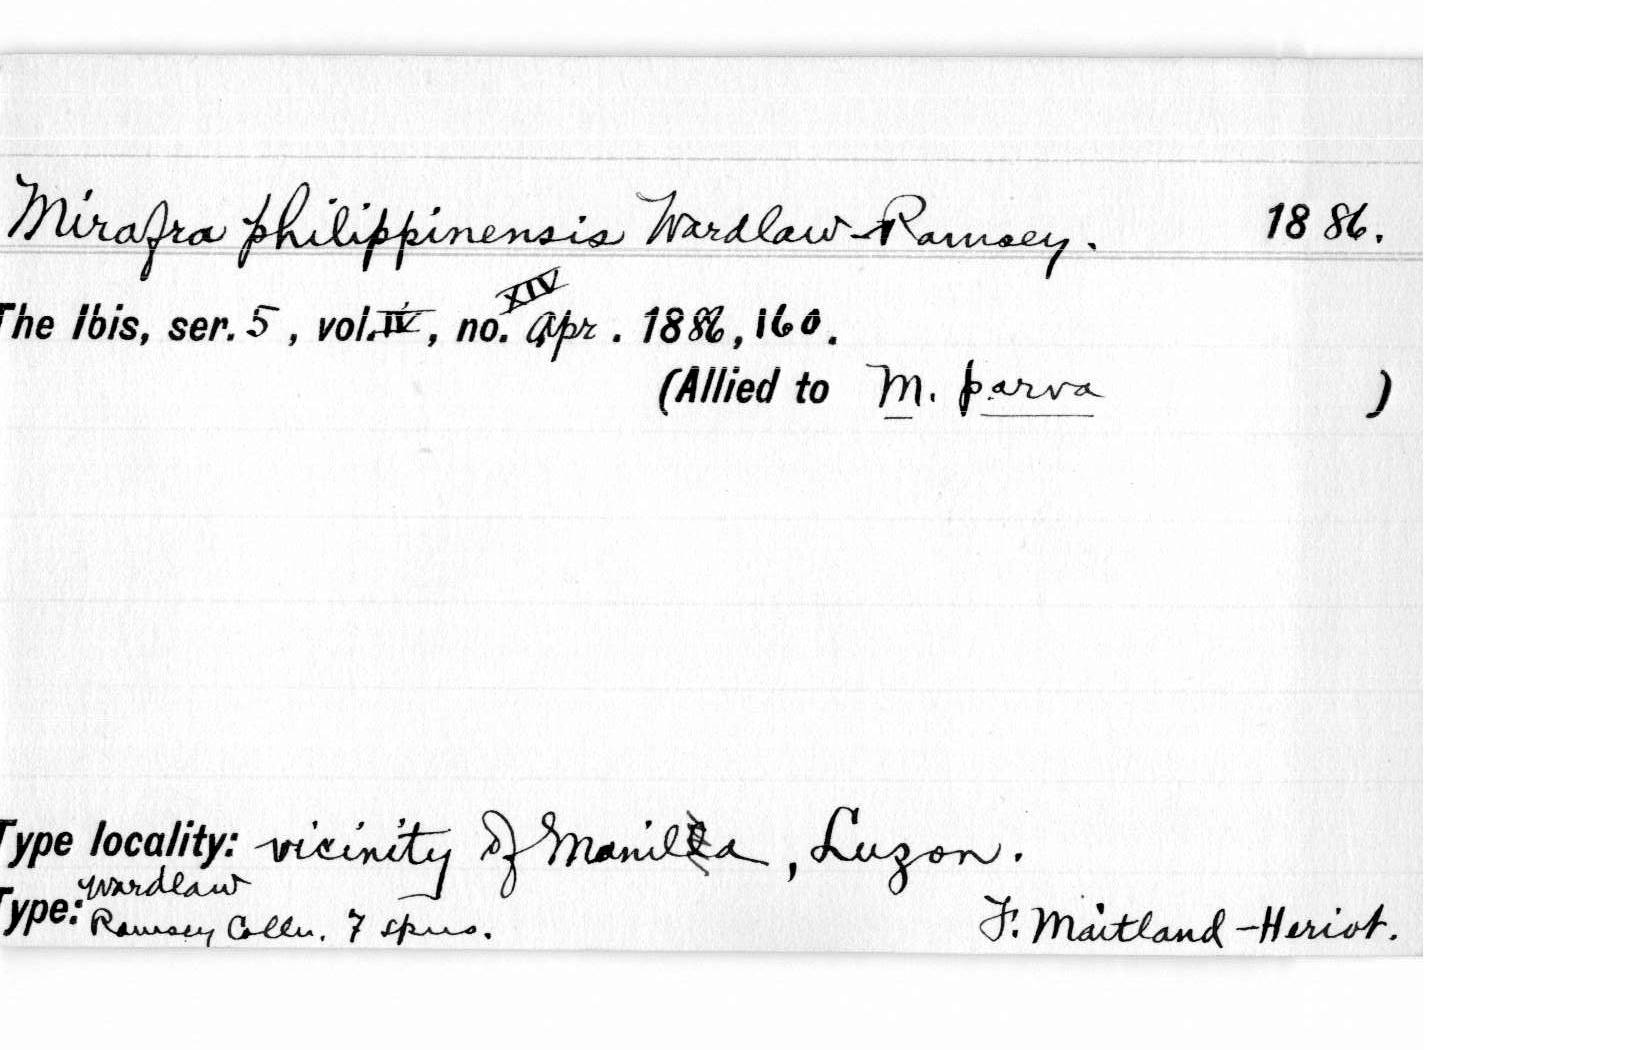 Mirafra philippinensis Wardlaw-Ramsey. 1886.
XIV
The Ibis, ser. 5, vol. IV, no. Apr. 1886, 160.
(Allied to M. parva )
Type locality: vicinity of Manila, Luzon.
Wardlaw
Type: Ramsey Colln. 7 spms. F. Maitland-Heriot.